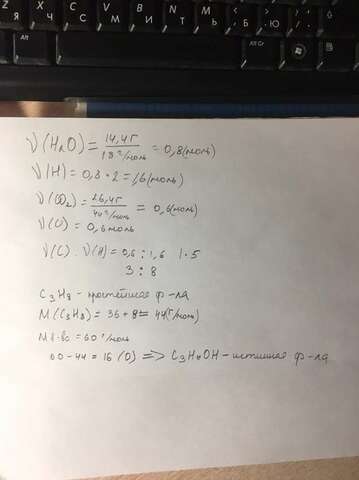 Z Я X Ч C С V М B И N Т M Ь < Б > Ю ? /
Alt
Alt Gr
ν(H₂O) = 14,4г / 18 г/моль = 0,8(моль)
ν(H) = 0,8 · 2 = 1,6(моль)
ν(CO₂) = 26,4г / 44 г/моль = 0,6(моль)
ν(C) = 0,6 моль
ν(C) : ν(H) = 0,6 : 1,6 | · 5
3 : 8
C₃H₈ – простейшая ф-ла
M(C₃H₈) = 36 + 8 = 44(г/моль)
M в-ва = 60 г/моль
60 – 44 = 16 (O) => C₃H₇OH – истинная ф-ла